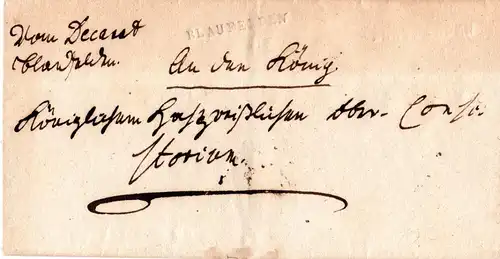 Vom Decanat
Blaufelden.
BLAUFELDEN
An den König
Königlichem Hochpreißlichen Ober-Consi-
storium.